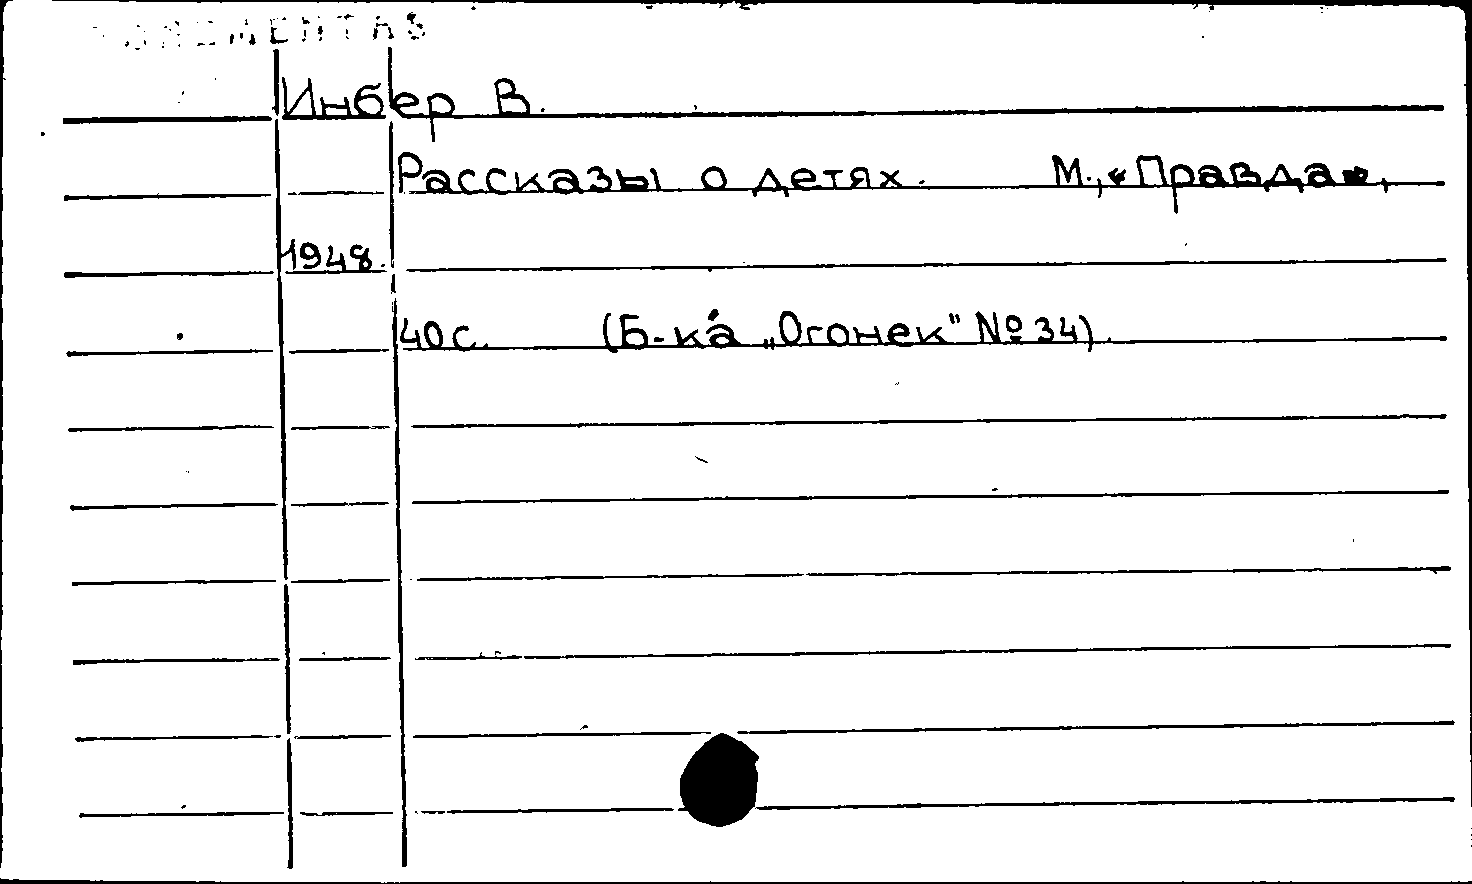 Инбер В.
Рассказы о детях. М., «Правда»,
1948.
40 с. (Б-ка „Огонек" № 34).